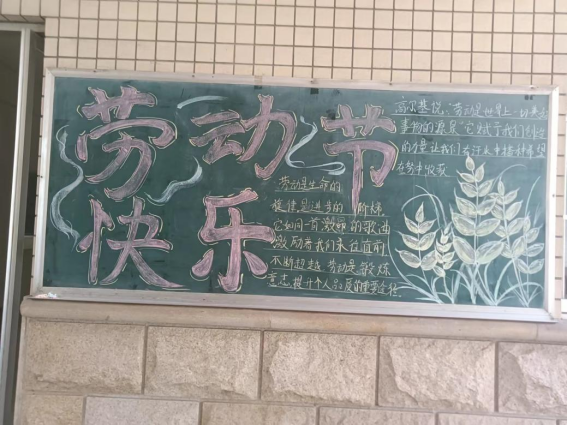 劳动节
快乐
高尔基说,"劳动是世界上一切美
事物的源泉"它赋予我们创造
的力量让我们在汗水中播种希望
在劳中收获
劳动是生命的
旋律,是进步的阶梯
它如同一首激昂的歌曲
激励着我们来在直前
不断超越 劳动是锻炼
意志提升个人品质的重要途径.